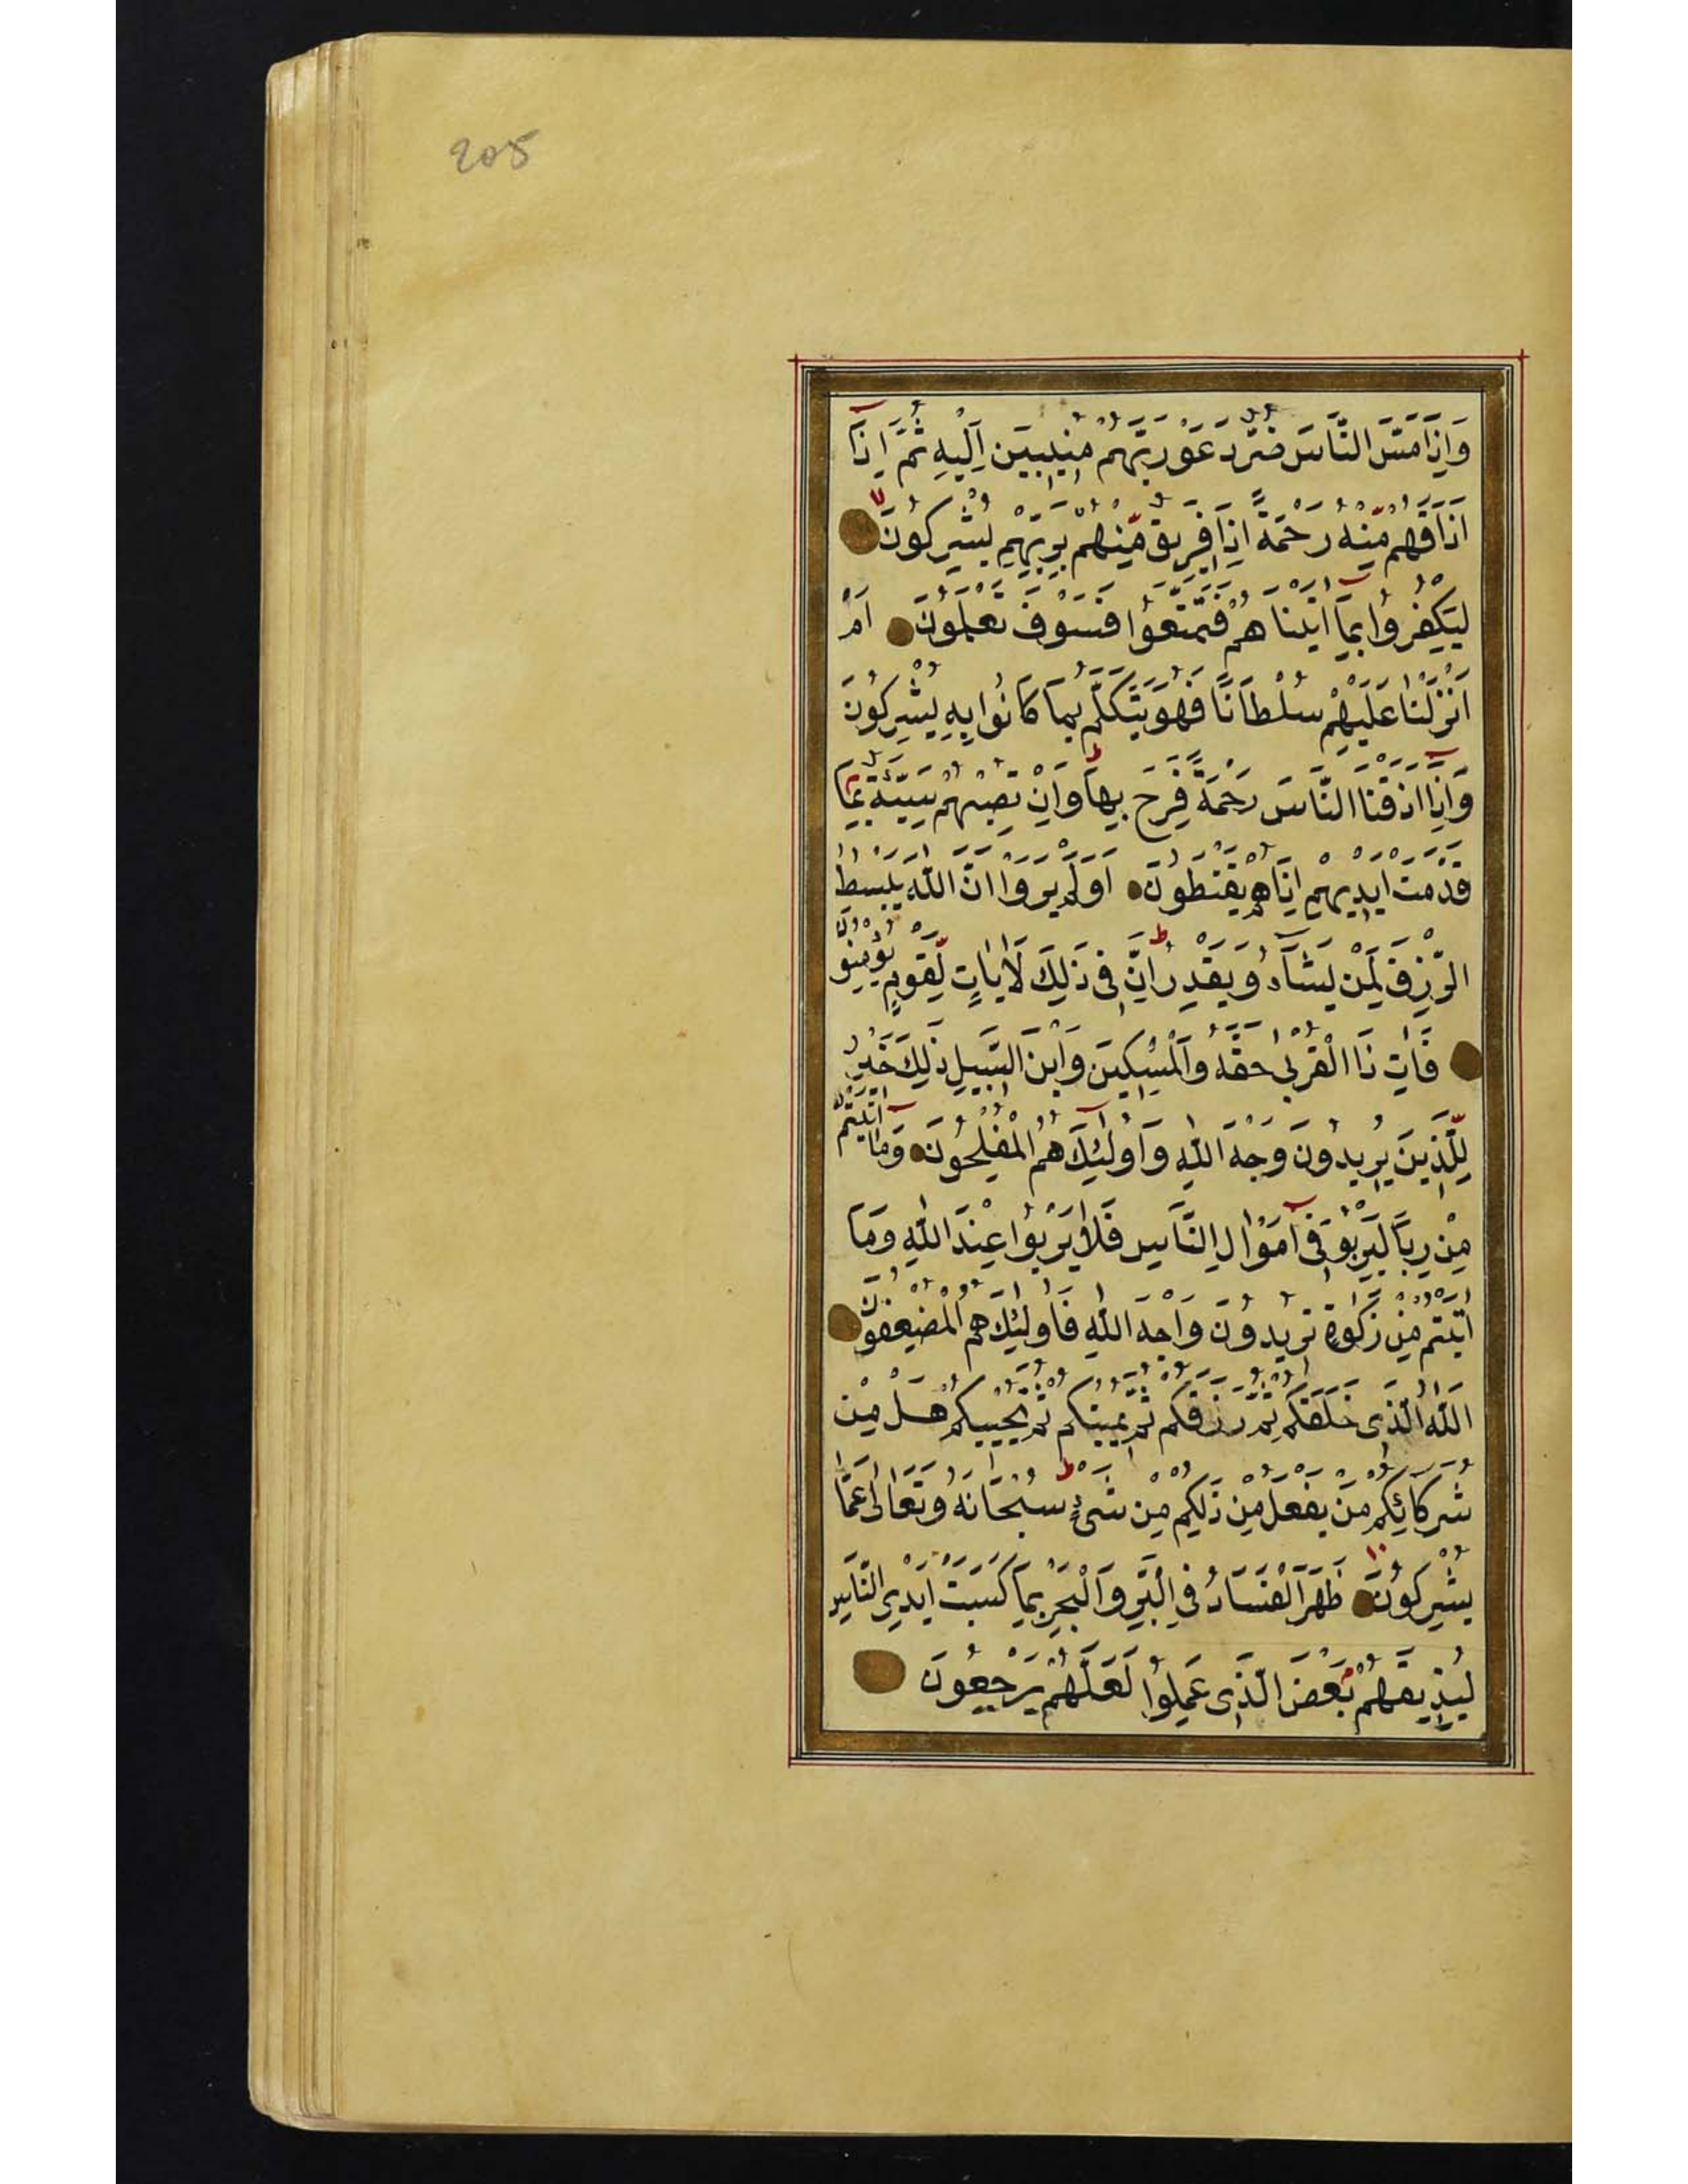 205
وَاِذَا مَسَّ النَّاسَ ضُرٌّ دَعَوْ رَبَّهُمْ مُنِيبِينَ اِلَيْهِ ثُمَّ اِذَآ
اَذَاقَهُمْ مِّنْهُ رَحْمَةً اِذَا فَرِيقٌ مِّنْهُمْ بِرَبِّهِمْ يُشْرِكُونَ
لِيَكْفُرُوا بِمَآ اٰتَيْنَاهُمْ فَتَمَتَّعُوا فَسَوْفَ تَعْلَمُونَ اَمْ
اَنْزَلْنَا عَلَيْهِمْ سُلْطَانًا فَهُوَ يَتَكَلَّمُ بِمَا كَانُوا بِهِ يُشْرِكُونَ
وَاِذَآ اَذَقْنَا النَّاسَ رَحْمَةً فَرِحَ بِهَا وَاِنْ تُصِبْهُمْ سَيِّئَةٌ بِمَا
قَدَّمَتْ اَيْدِيهِمْ اِذَا هُمْ يَقْنَطُونَ اَوَلَمْ يَرَوْا اَنَّ اللّٰهَ يَبْسُطُ
الرِّزْقَ لِمَنْ يَشَآءُ وَيَقْدِرُ اِنَّ فِى ذٰلِكَ لَاٰيَاتٍ لِّقَوْمٍ يُؤْمِنُونَ
فَاٰتِ ذَا الْقُرْبٰى حَقَّهُ وَالْمِسْكِينَ وَابْنَ السَّبِيلِ ذٰلِكَ خَيْرٌ
لِلَّذِينَ يُرِيدُونَ وَجْهَ اللّٰهِ وَاُولٰئِكَ هُمُ الْمُفْلِحُونَ وَمَآ اٰتَيْتُمْ
مِنْ رِبًا لِيَرْبُوَ فِىٓ اَمْوَالِ النَّاسِ فَلَا يَرْبُوا عِنْدَ اللّٰهِ وَمَآ
اٰتَيْتُمْ مِنْ زَكٰوةٍ تُرِيدُونَ وَجْهَ اللّٰهِ فَاُولٰئِكَ هُمُ الْمُضْعِفُونَ
اَللّٰهُ الَّذِى خَلَقَكُمْ ثُمَّ رَزَقَكُمْ ثُمَّ يُمِيتُكُمْ ثُمَّ يُحْيِيكُمْ هَلْ مِنْ
شُرَكَائِكُمْ مَنْ يَفْعَلُ مِنْ ذٰلِكُمْ مِنْ شَىْءٍ سُبْحَانَهُ وَتَعَالٰى عَمَّا
يُشْرِكُونَ ظَهَرَ الْفَسَادُ فِى الْبَرِّ وَالْبَحْرِ بِمَا كَسَبَتْ اَيْدِى النَّاسِ
لِيُذِيقَهُمْ بَعْضَ الَّذِى عَمِلُوا لَعَلَّهُمْ يَرْجِعُونَ